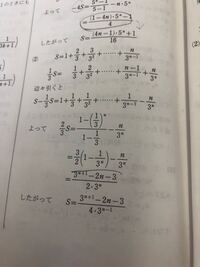 よって -4S=(5ⁿ-1)/(5-1)-n・5ⁿ
=((1-4n)・5ⁿ-1)/4
したがって S=((4n-1)・5ⁿ+1)/16
② S=1+2/3+3/3²+……+n/3ⁿ⁻¹
1/3 S= 1/3+2/3²+……+(n-1)/3ⁿ⁻¹+n/3ⁿ
辺々引くと
S-1/3 S=1+1/3+1/3²+……+1/3ⁿ⁻¹-n/3ⁿ
よって 2/3 S=(1-(1/3)ⁿ)/(1-1/3)-n/3ⁿ
=3/2(1-1/3ⁿ)-n/3ⁿ
=(3ⁿ⁺¹-2n-3)/(2・3ⁿ)
したがって S=(3ⁿ⁺¹-2n-3)/(4・3ⁿ⁻¹)